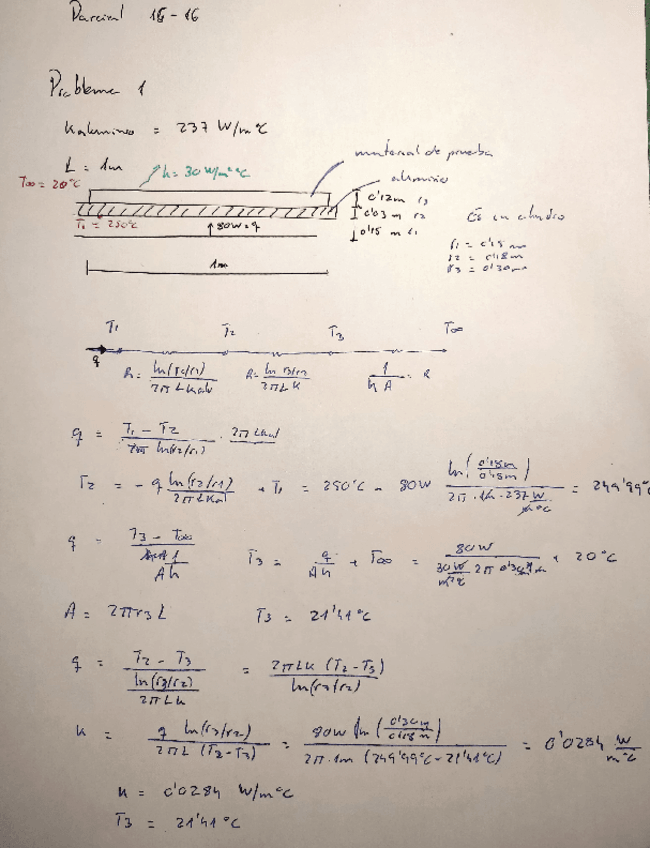 Parcial 15-16
Problema 1
Kaluminio = 237 W/m°C
L = 1m
h = 30 W/m²°C
material de prueba
aluminio
T∞ = 20°C
T1 = 250°C
80W = q
0'12m r3
0'03 m r2
0'15 m r1
Es un cilindro
r1 = 0'15 m
r2 = 0'18 m
r3 = 0'30 m
1m
T1 T2 T3 T∞
q
R = ln(r2/r1) / 2πLKalu R = ln r3/r2 / 2πLK 1 / hA = R
q = T1 - T2 / ln(r2/r1) · 2πLKal
T2 = -q ln(r2/r1) / 2πLKal + T1 = 250°C - 80W ln(0'18m / 0'15m) / 2π · 1m · 237 W/m°C = 249'99°C
q = T3 - T∞ / 1 / Ah T3 = q / Ah + T∞ = 80W / 30W/m²°C 2π 0'30m 1m + 20°C
A = 2πr3 L T3 = 21'41°C
q = T2 - T3 / ln(r3/r2) / 2πLk = 2πLk (T2 - T3) / ln(r3/r2)
k = q ln(r3/r2) / 2πL (T2 - T3) = 80W ln(0'30m / 0'18m) / 2π · 1m (249'99°C - 21'41°C) = 0'0284 W/m°C
k = 0'0284 W/m°C
T3 = 21'41°C